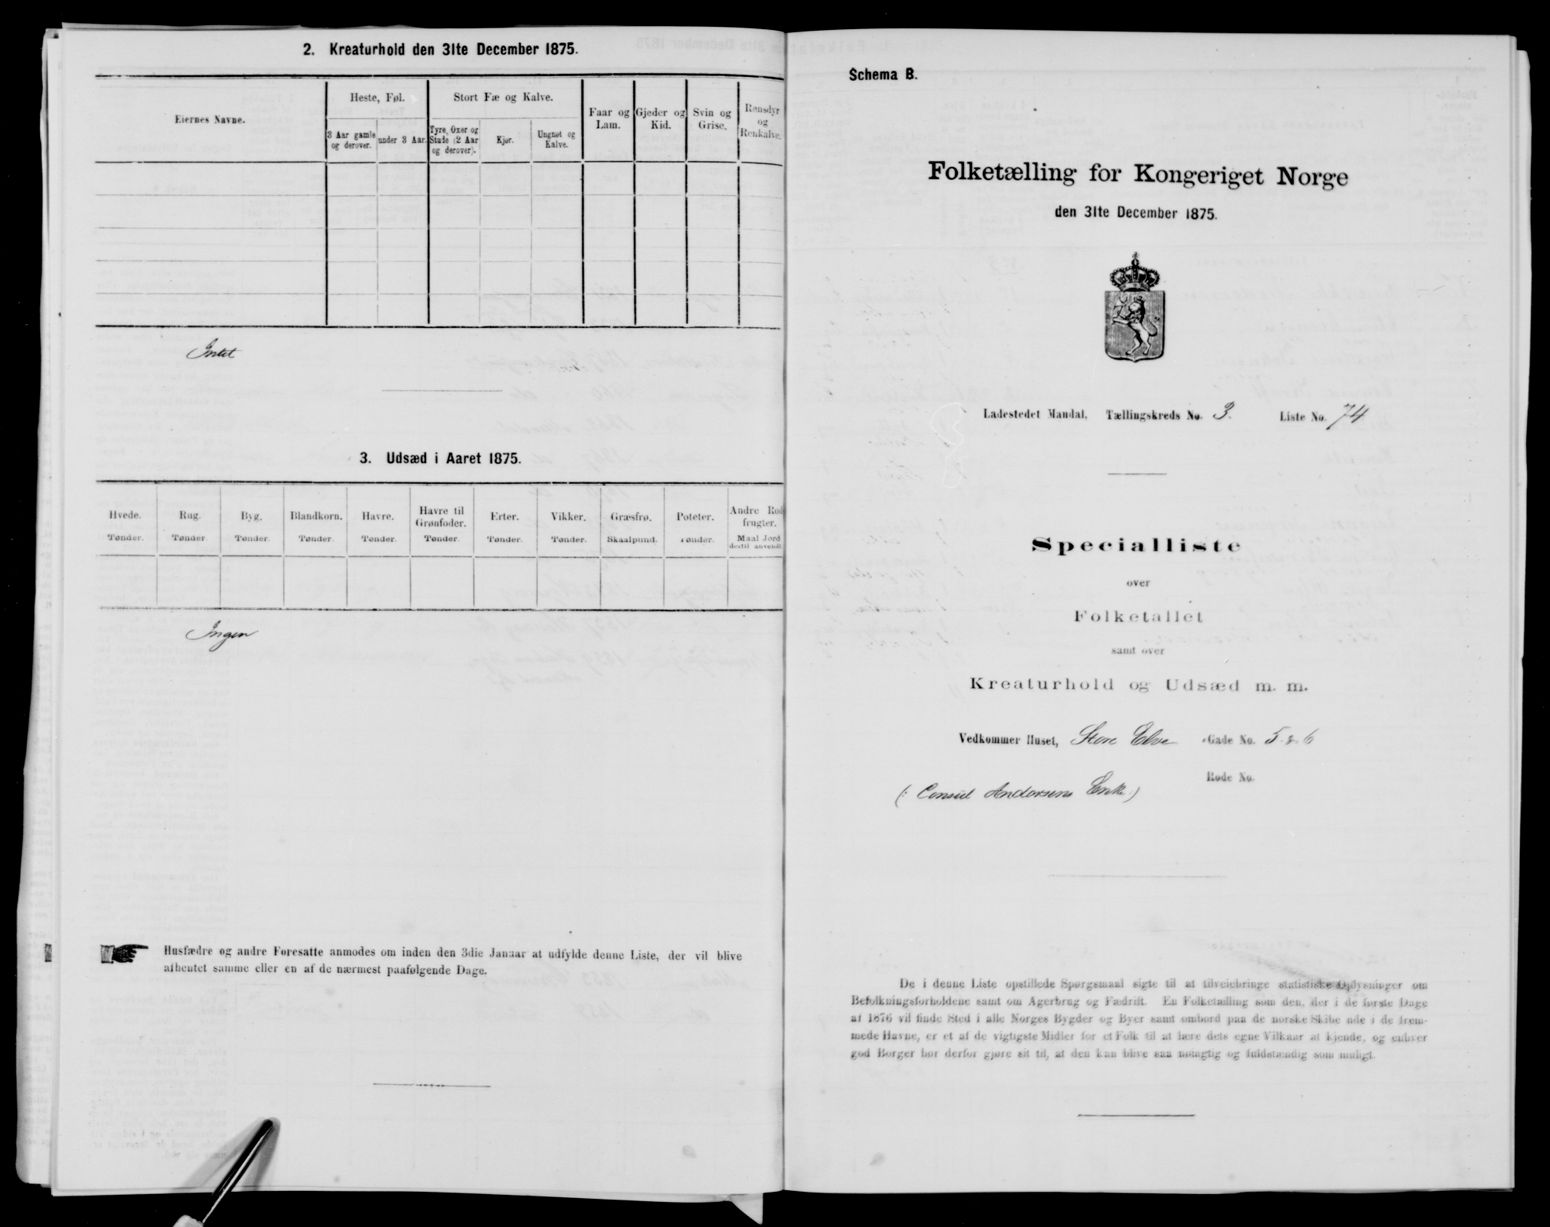 2. Kreaturhold den 31te December 1875.
Eiernes Navne.
Heste, Føl.
Stort Fæ og Kalve.
Faar og Lam.
Gjeder og Kid.
Svin og Grise.
Rensdyr og Renkalve.
3 Aar gamle og derover.
under 3 Aar.
Tyre, Oxer og Stude (2 Aar og derover).
Kjør.
Ungnøt og Kalve.
Intet
3. Udsæd i Aaret 1875.
Hvede. Rug. Byg. Blandkorn. Havre. Havre til Grønfoder. Erter. Vikker. Græsfrø. Poteter. Andre Rodfrugter.
Tønder. Tønder. Tønder. Tønder. Tønder. Tønder. Tønder. Tønder. Skaalpund. Tønder. Maal Jord dertil anvendt.
Ingen
Husfædre og andre Foresatte anmodes om inden den 3die Januar at udfylde denne Liste, der vil blive
afhentet samme eller en af de nærmest paafølgende Dage.
Schema B.
Folketælling for Kongeriget Norge
den 31te December 1875.
Ladestedet Mandal, Tællingskreds No. 3. Liste No. 74
Specialliste
over
Folketallet
samt over
Kreaturhold og Udsæd m. m.
Vedkommer Huset, Store Elve -Gade No. 5 & 6
Rode No.
(: Consul Andorsens Enke :)
De i denne Liste opstillede Spørgsmaal sigte til at tilveiebringe statistiske Oplysninger om
Befolkningsforholdene samt om Agerbrug og Fædrift. En Folketælling som den, der i de første Dage
af 1876 vil finde Sted i alle Norges Bygder og Byer samt ombord paa de norske Skibe ude i de frem-
mede Havne, er et af de vigtigste Midler for et Folk til at lære dets egne Vilkaar at kjende, og enhver
god Borger bør derfor gjøre sit til, at den kan blive saa nøiagtig og fuldstændig som muligt.